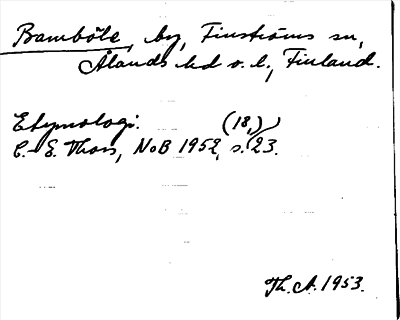 Bamböle, by, Finströms sn,
Ålands hd o. l., Finland.
Etymologi. (18,)
C.-E. Thors, NoB 1952, s. 23.
Th. A. 1953.